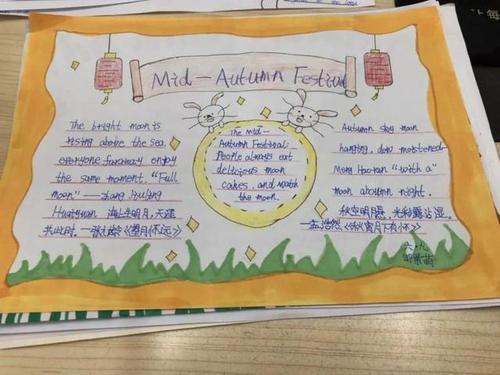 Mid-Autumn Festival
The bright moon is
rising above the sea.
everyone faraway enjoy
the same moment. "Full
moon" — zhang jiuling
海上生明月,天涯
共此时。—张九龄《望月怀远》
The mid-
Autumn Festival:
People always eat
delicious moon
cakes. and watch
the moon.
Autumn sky moon
hanging, dew moistened.
Meng Haoran "with a
moon autumn night.
秋空明月悬,光彩露沾湿。
—孟浩然《秋宵月下有怀》
六.九